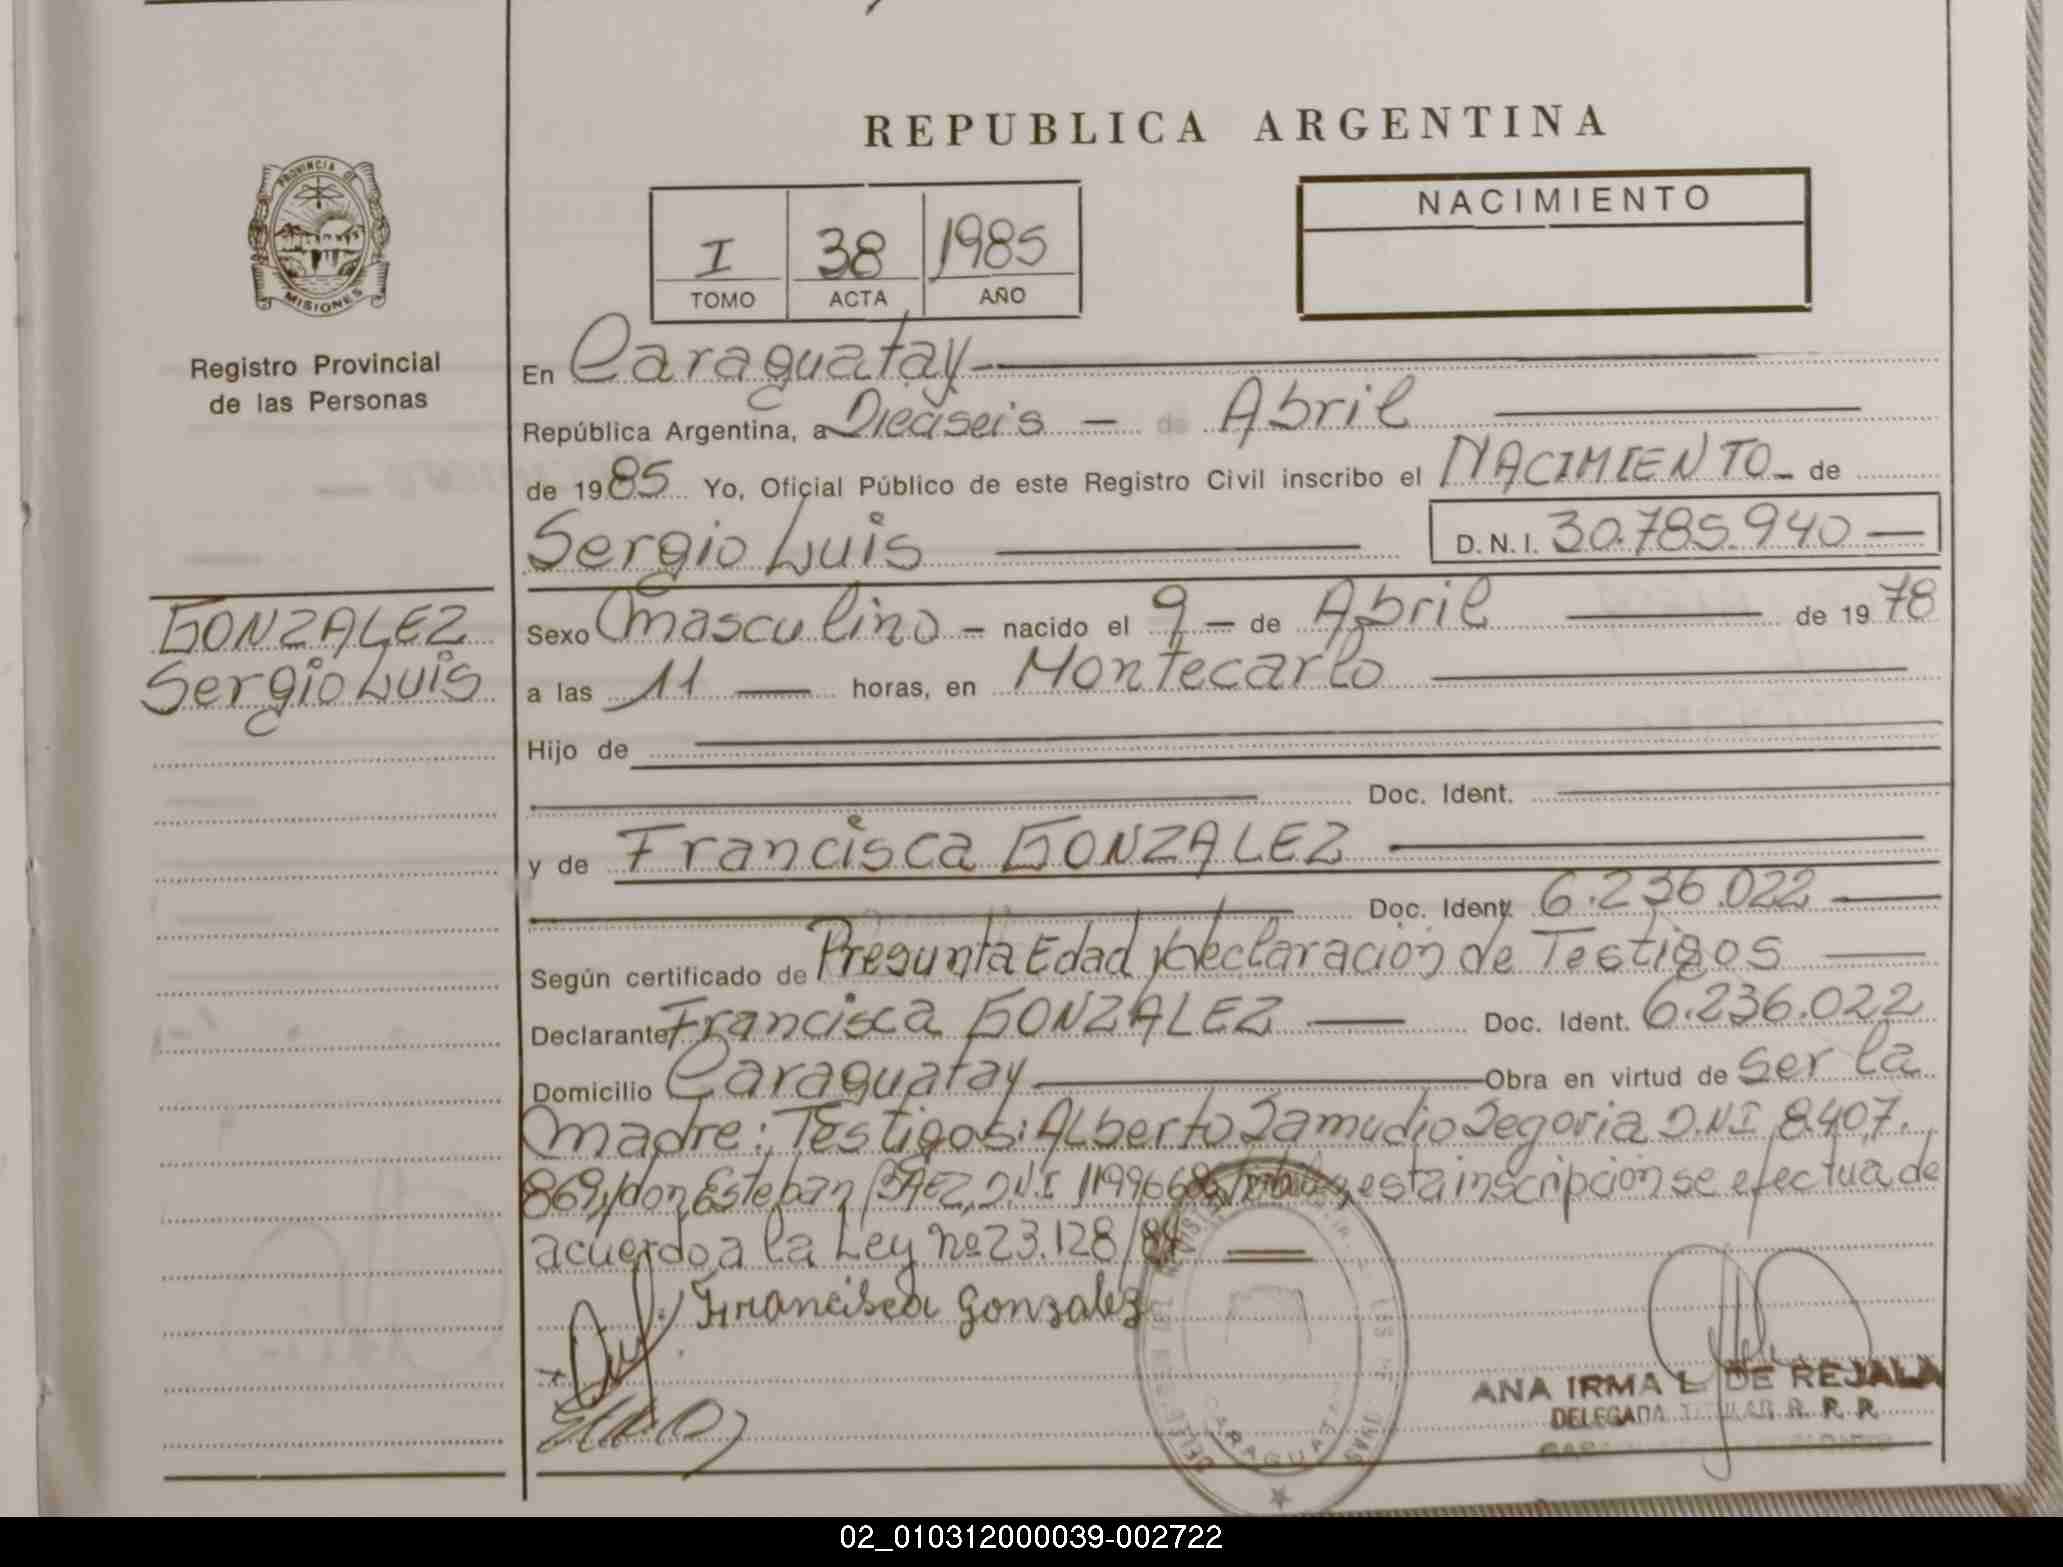 REPUBLICA ARGENTINA
PROVINCIA DE
MISIONES
Registro Provincial
de las Personas
I 38 1985
TOMO ACTA AÑO
NACIMIENTO
En Caraguatay
República Argentina, a Dieciseis - de Abril
de 1985 Yo, Oficial Público de este Registro Civil inscribo el NACIMIENTO - de
Sergio Luis D.N.I. 30.785.940
GONZALEZ
Sergio Luis
Sexo Masculino - nacido el 9 - de Abril de 1978
a las 11 horas, en Montecarlo
Hijo de
Doc. Ident.
y de Francisca GONZALEZ
Doc. Ident. 6.236.022
Según certificado de Presunta Edad y declaración de Testigos
Declarante Francisca GONZALEZ Doc. Ident. 6.236.022
Domicilio Caraguatay Obra en virtud de ser la
madre: Testigos: Alberto Samudio Segovia D.N.I 8.407.
869, y don Esteban BAEZ, D.N.I esta inscripción se efectua de
acuerdo a la Ley nº 23.128/84
Francisca Gonzalez
ANA IRMA L. DE REJALA
DELEGADA TITULAR R. P. P.
CARAGUATAY
02_010312000039-002722